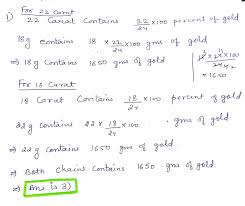 1) For 22 Carat
22 Carat Contains 22/24 x100 percent of gold
18g contains 18 x 22/24 x100 gms of gold
⇒ 18g Contains 1650 gms of gold
= 1650
For 18 Carat
18 Carat Contains 18/24 x100 percent of gold
22g contains 22 x 18/24 x100 gms of gold
⇒ 22g contains 1650 gms of gold
⇒ Both Chains Contains 1650 gms of gold
⇒ Ans is 3)